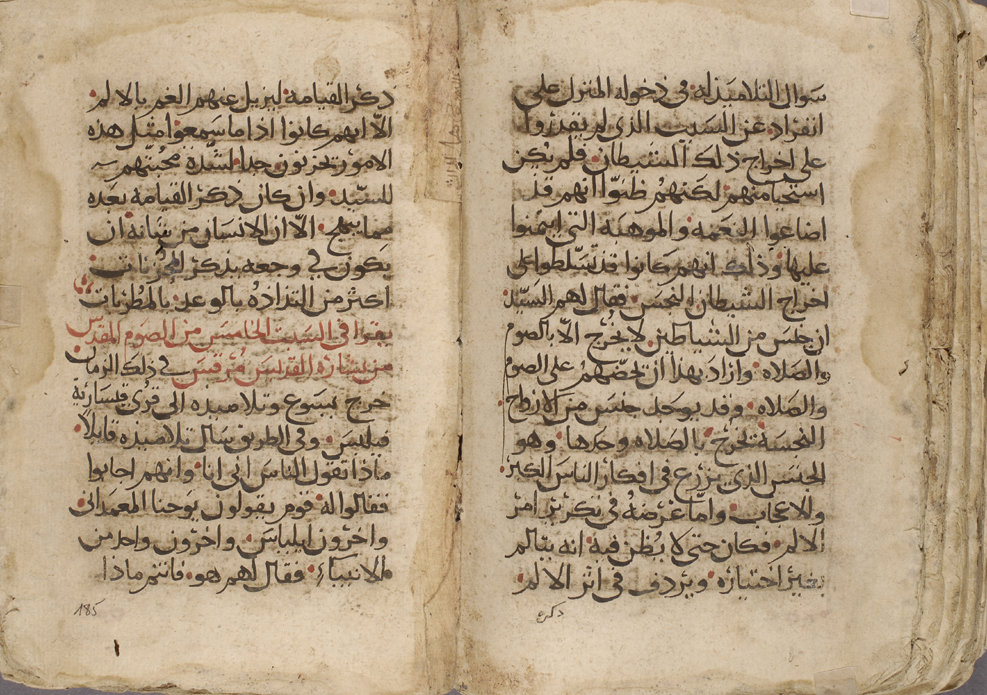 سوال التلاميذ له في دخوله المنزل على
انفراد عن السبب الذي لم يقدروا
على اخراج ذلك الشيطان فلم يكن
منهم لكنهم ظنوا انهم قد
اضاعوا النعمه والموهبه التي ايتمنوا
عليها وذلك انهم كانوا قد تسلطوا على
اخراج الشيطان النجس فقال لهم السيد
ان جنس من الشياطين لا يخرج الا بالصوم
والصلاه واراد بهذا ان يحضهم على الصوم
والصلاه وقد يوجد جنس من الارواح
النجسة تخرج بالصلاه وحدها وهو
الجنس الذي يزرع في افكار الناس الكبر
والاعجاب واما غرضه في تكرير امر
الالم فكان حتى لا يظن فيه انه يتالم
بغير اختياره ويردف في اثر الالم
ذكر
ذكر القيامه ليزيل عنهم الغم بالالم
الا انهم كانوا اذا ما سمعوا مثل هذه
الامور يحزنون جدا لشدة محبتهم
للسيد وان كان ذكر القيامه بعده
مما يبهج الا ان الانسان من شانه ان
يكون في وجعه بذكر المحزنات
اكثر من التذاذه بالوعد بالمطربات
يقرا في السبت الخامس من الصوم المقدس
من بشاره القديس مرقس في ذلك الزمان
خرج يسوع وتلاميذه الى قرى قيسارية
فيلبس وفي الطريق سال تلاميذه قايلا
ماذا تقول الناس اني انا وانهم اجابوا
فقالوا له قوم يقولون يوحنا المعمداني
واخرون ايلياس واخرون واحد من
الانبياء فقال لهم هو فانتم ماذا
185